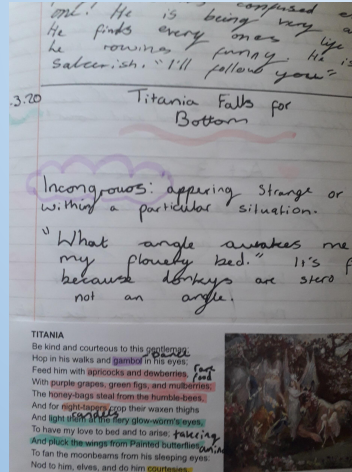 confused
out! He is being very a
He finds every ones life
he funny. He is
"I'll follow you"
3.20
Titania Falls for
Bottom
Incongrouos: appering strange or
withing a particular situation.
"What angle awakes me
my flowery bed." It's f
because donkeys are stero
not an angle.
TITANIA
Be kind and courteous to this gentleman;
dance
Hop in his walks and gambol in his eyes;
Feed him with apricocks and dewberries,
food
With purple grapes, green figs, and mulberries;
The honey-bags steal from the humble-bees,
And for night-tapers crop their waxen thighs
candels
And light them at the fiery glow-worm's eyes,
To have my love to bed and to arise;
And pluck the wings from Painted butterflies
To fan the moonbeams from his sleeping eyes:
Nod to him, elves, and do him courtesies.